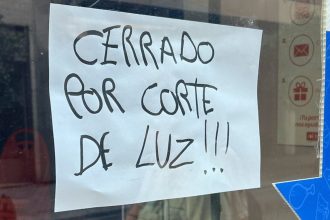 CERRADO
POR CORTE
DE LUZ!!!